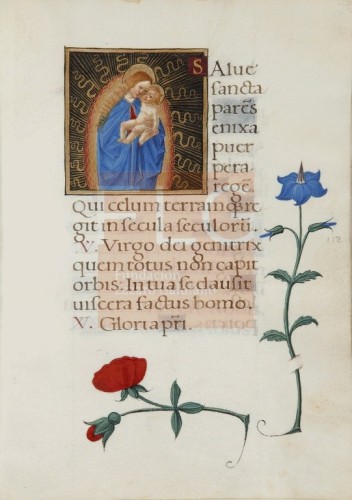 Salue
sancta
parēs
enixa
puer
pera
rege.
Qui celum terram q̄ re
git in secula seculorū.
V. Virgo dei genitrix
quem totus non capit
orbis. In tua se clausit
uiscera factus homo.
V. Gloria pr̄i.
112